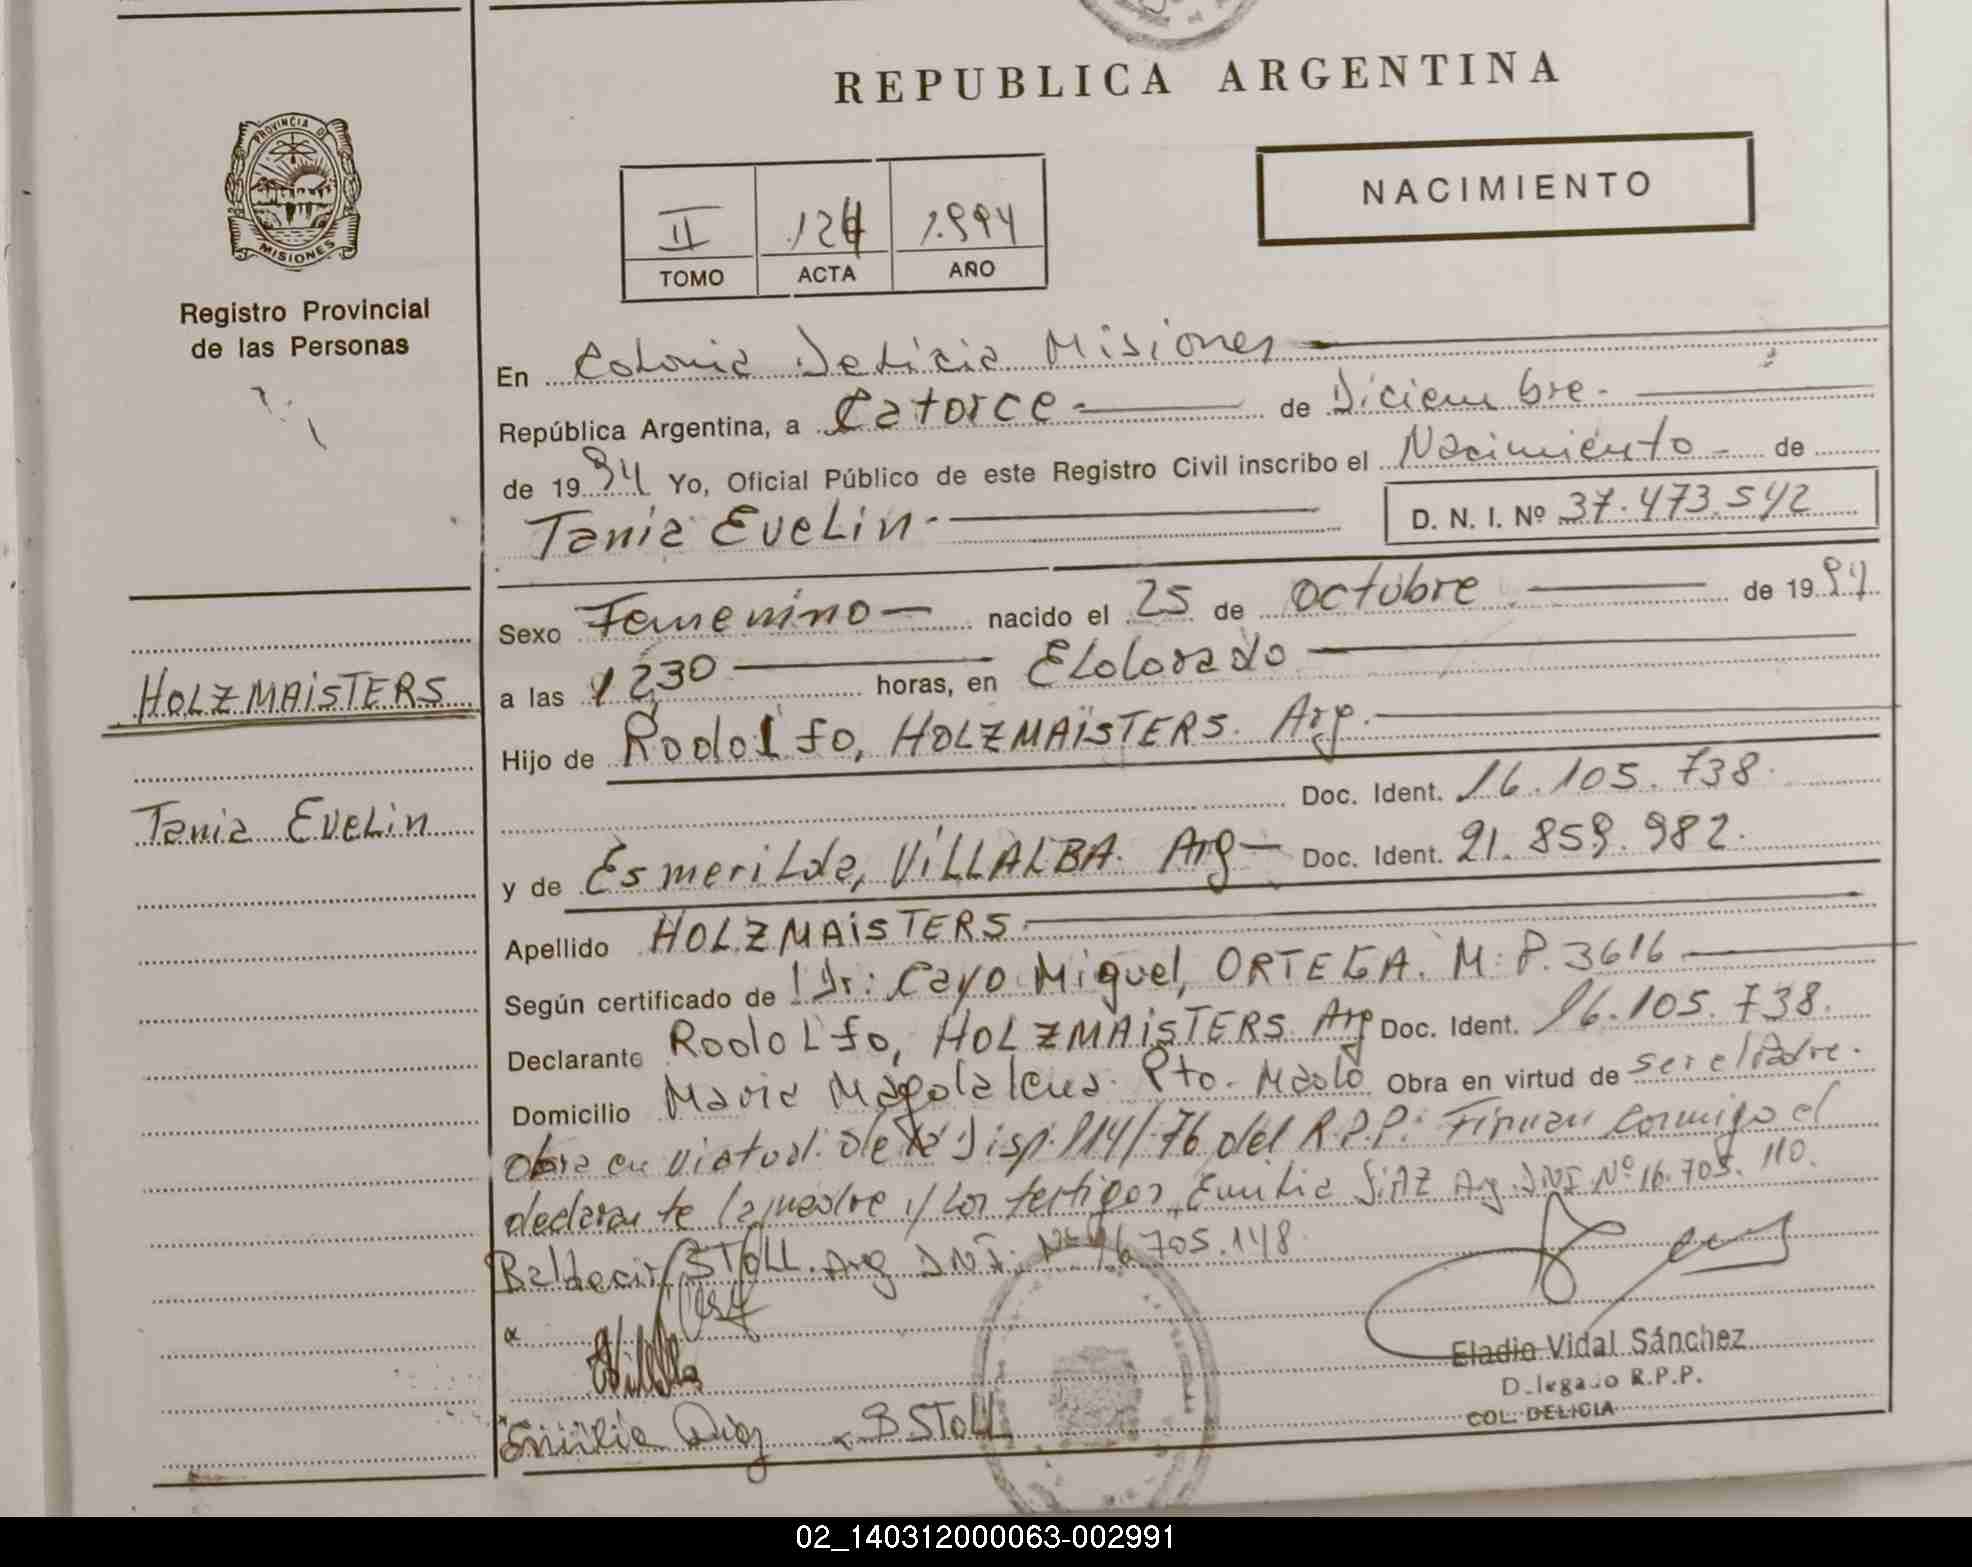 REPUBLICA ARGENTINA
NACIMIENTO
II
1.994
TOMO
ACTA
AÑO
PROVINCIA DE
MISIONES
Registro Provincial
de las Personas
HOLZMAISTERS
Tania Evelin
En Colonia Delicia Misiones
República Argentina, a Catorce - de Diciembre.
de 1994 Yo, Oficial Público de este Registro Civil inscribo el Nacimiento - de
Tania Evelin - D. N. I. Nº 37.473.542
Sexo Femenino nacido el 25 de octubre de 1994
a las 1230 horas, en Eldorado
Hijo de Rodolfo, HOLZMAiSTERS. Arg.
Doc. Ident. 16.105.738.
y de Esmerilda, ViLLALBA. Arg - Doc. Ident. 21.859.982.
Apellido HOLZMAiSTERS
Según certificado de Dr: Cayo Miguel, ORTEGA. M.P. 3616
Declarante Rodolfo, HOLZMAiSTERS Arg Doc. Ident. 16.105.738.
Domicilio Maria Magdalena. Pto. Obra en virtud de ser el Padre.
obra en virtud. de la Disp. 114/76 del R.P.P. Firman conmigo el
declarante la madre y los testigos, Emilia DiAZ Arg. DNI. Nº 16.705.110.
STOLL. Arg DNI. Nº 16.705.148.
Emilia Diaz B STOLL
Eladio Vidal Sánchez
Delegado R.P.P.
COL. DELICIA
02_140312000063-002991